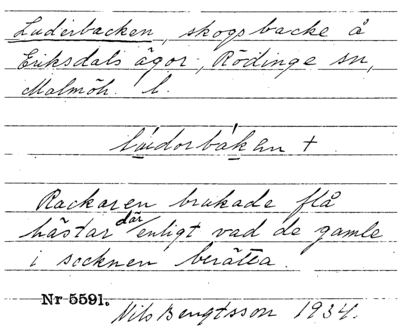 Luderbacken, skogsbacke å
Eriksdals ägor, Rödinge sn,
Malmöh. l.
lúidorbákan +
Rackaren brukade flå
hästar där enligt vad de gamle
i socknen berätta.
Nr 5591.
Nils Bengtsson 1934.